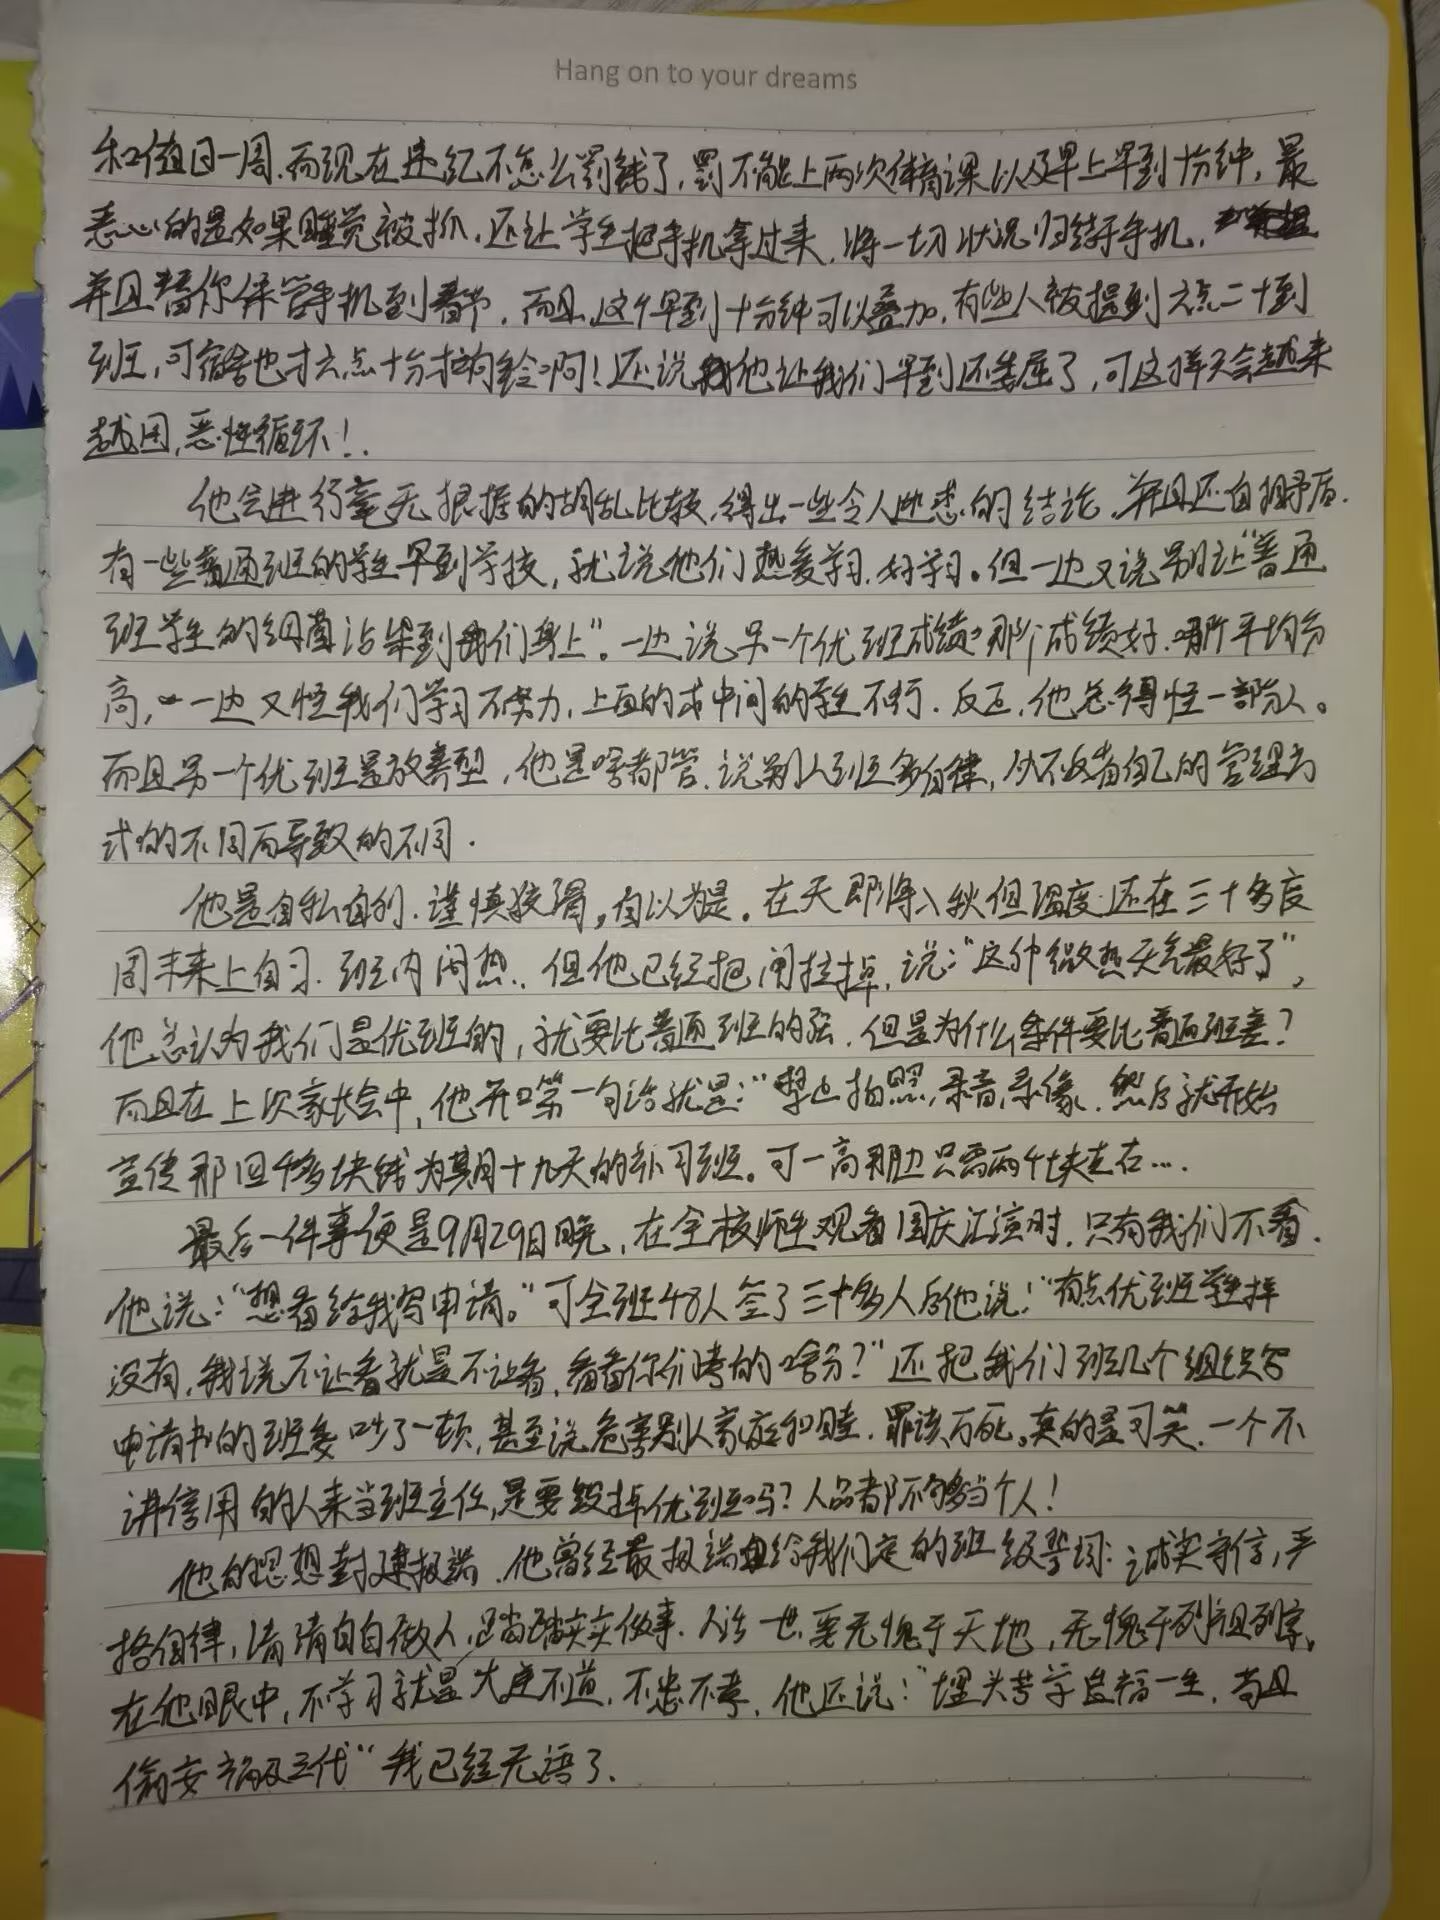 Hang on to your dreams
和值日一周.而现在违纪不怎么罚钱了,罚不能上两次体育课以及早上早到十分钟,最
恶心的是如果睡觉被抓,还让学生把手机拿过来,将一切状况归结于手机,
并且替你保管手机到春节.而且,这个早到十分钟可以叠加,有些人被提到六点二十到
班,可宿舍也才六点十分才响铃啊!还说他让我们早到还委屈了,可这样只会越来
越困,恶性循环!
他会进行毫无根据的胡乱比较,得出一些令人迷惑的结论,并且还自相矛盾.
有一些普通班的学生早到学校,就说他们热爱学习,好学习。但一边又说别让“普通
班学生的细菌沾染到我们身上”。一边说另一个优班成绩那个成绩好,哪个平均分
高,一边又怪我们学习不努力,上面的或中间的学生不行.反正,他总得怪一部分人。
而且另一个优班是放养型,他是啥都管,说别人班多自律,从不反省自己的管理方
式的不同而导致的不同.
他是自私自利.谨慎狡猾。自以为是。在天即将入秋但温度还在三十多度
周末来上自习.班内闷热.但他已经把闸拉掉,说:“这种微热天气最好了”,
他总认为我们是优班的,就要比普通班的强.但是为什么条件要比普通班差?
而且在上次家长会中,他开口第一句话就是:“禁止拍照,录音,录像.然后就开始
宣传那四千多块钱为期十九天的补习班。可一高那边只需两千块左右....
最后一件事便是9月29日晚,在全校师生观看国庆汇演时,只有我们不看.
他说:“想看给我写申请。”可全班48人签了三十多人后他说:“有点优班学生样
没有,我说不让看就是不让看,看看你们考的啥分?”还把我们班几个组织写
申请书的班委吵了一顿,甚至说危害别人家庭和睦.罪该万死。真的是可笑.一个不
讲信用的人来当班主任,是要毁掉优班吗?人品都不够当个人!
他的思想封建极端.他曾经最极端给我们定的班级誓词:诚实守信,严
格自律,清清白白做人,踏踏实实做事.人活一世,要无愧于天地,无愧于列祖列宗。
在他眼中,不学习就是大逆不道,不忠不孝.他还说:“埋头苦学造福一生,苟且
偷安祸及三代“我已经无语了.